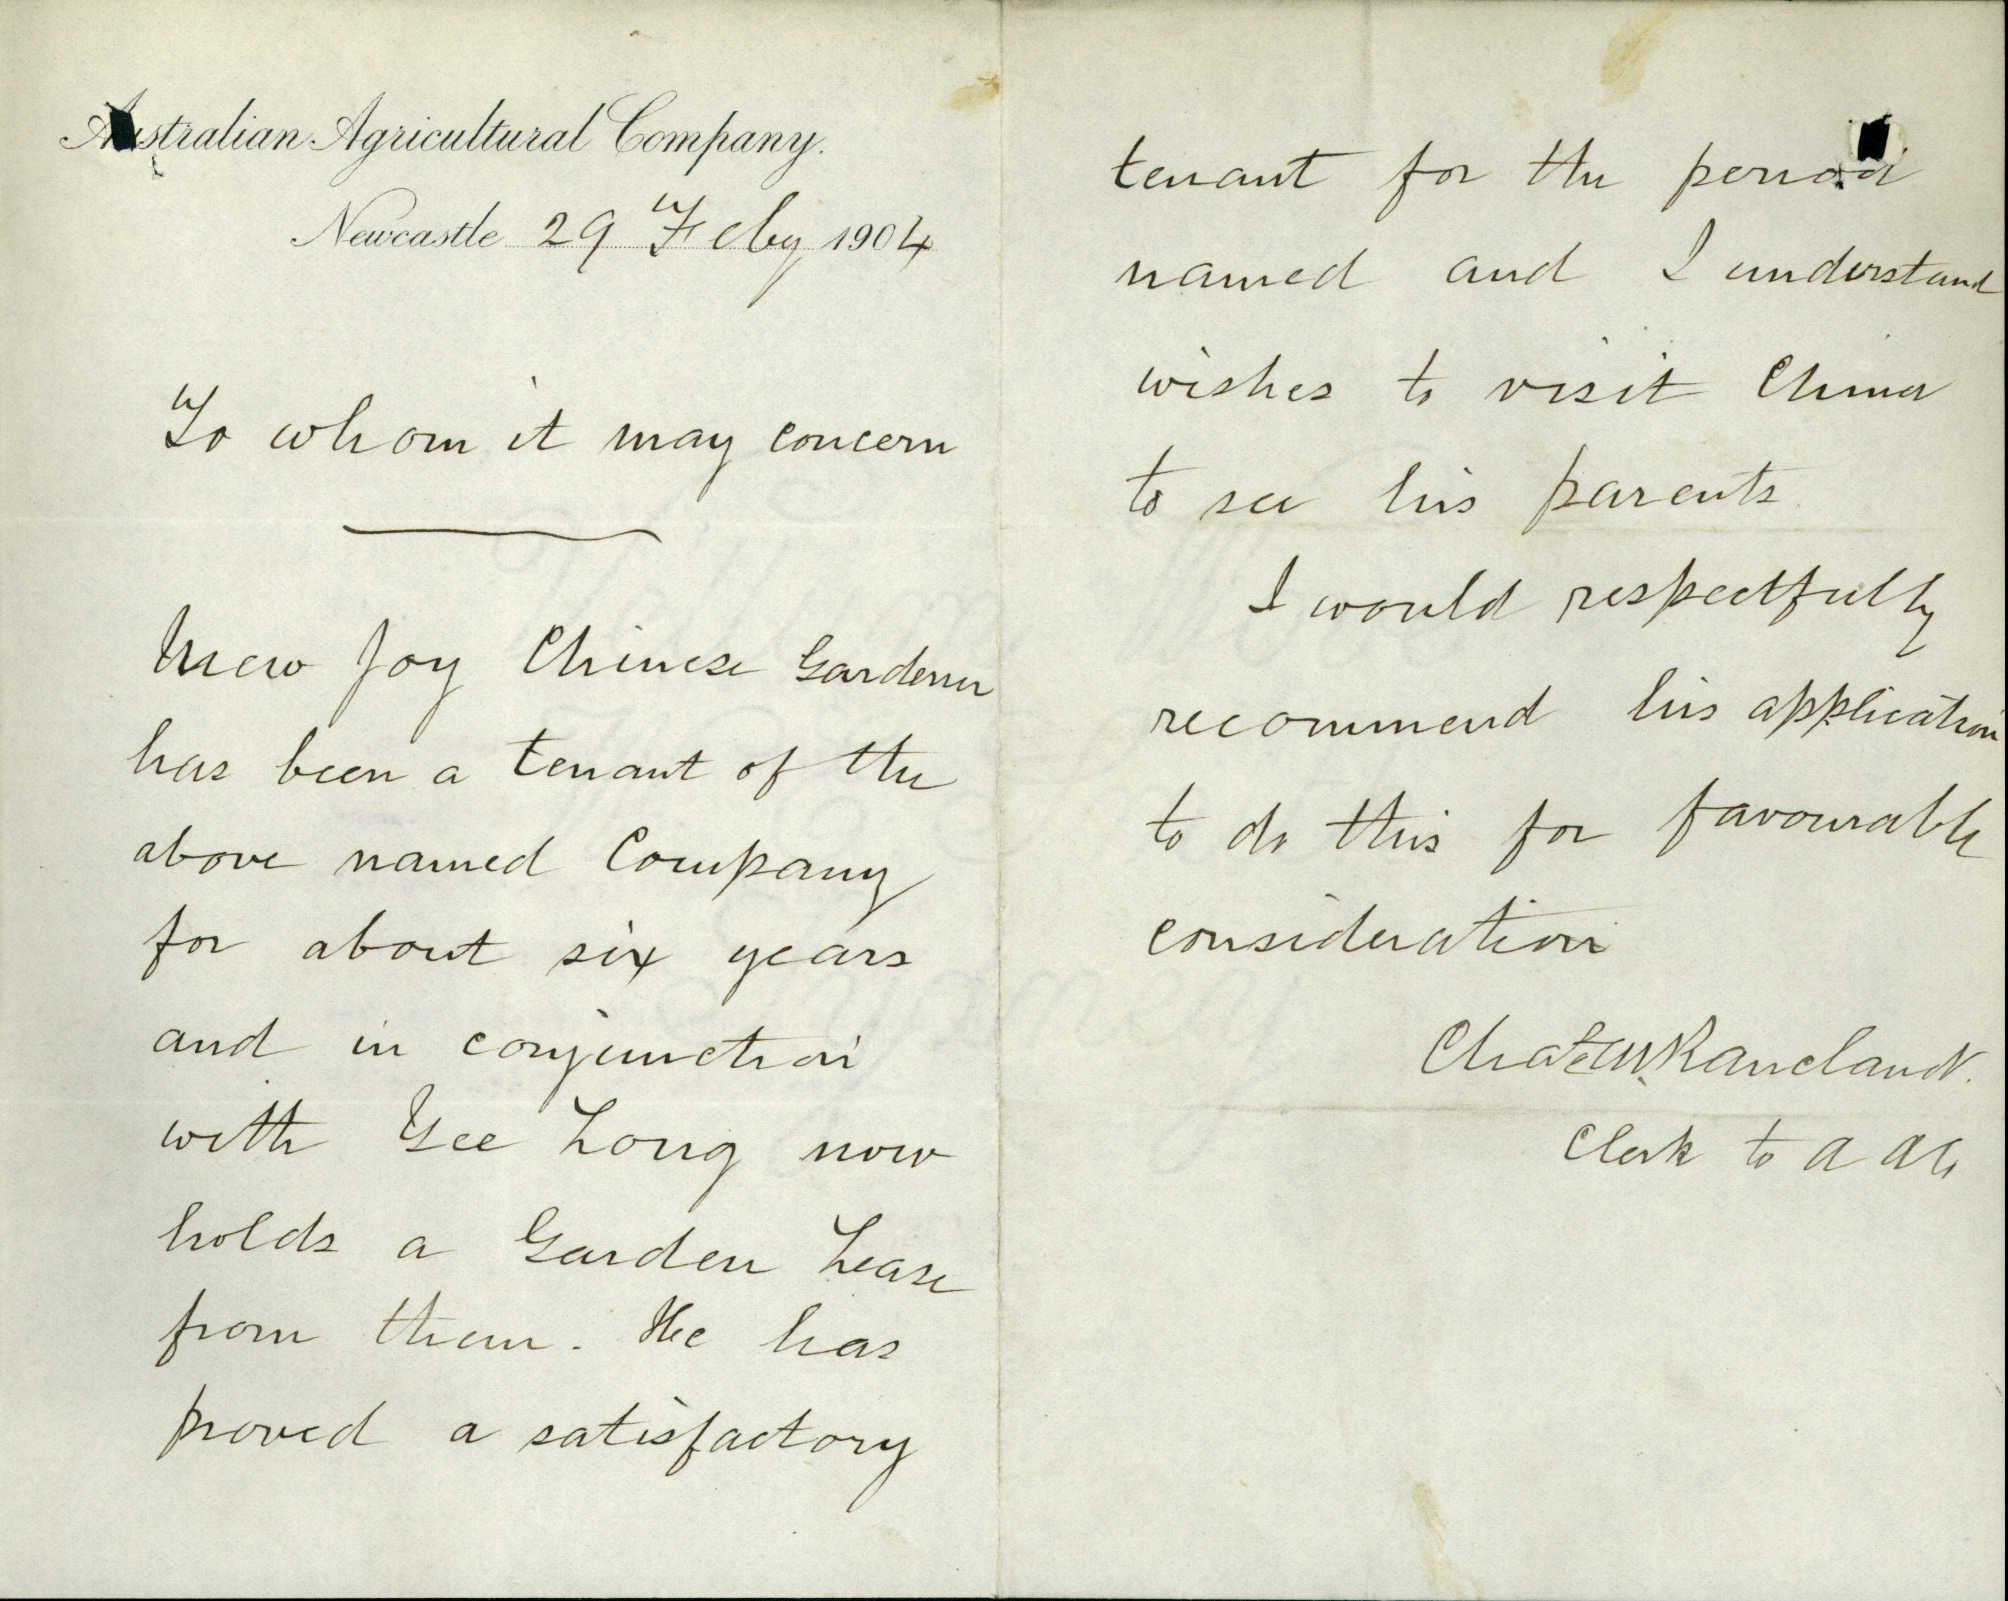 Australian Agricultural Company.
Newcastle 29 Feby 1904
To whom it may concern
Mew Joy Chinese Gardener
has been a tenant of the
above named Company
for about six years
and in conjunction
with Yee Long now
holds a Garden Lease
from them. He has
proved a satisfactory
tenant for the period
named and I understand
wishes to visit China
to see his parents
I would respectfully
recommend his application
to do this for favourable
consideration
Clerk to A A Co